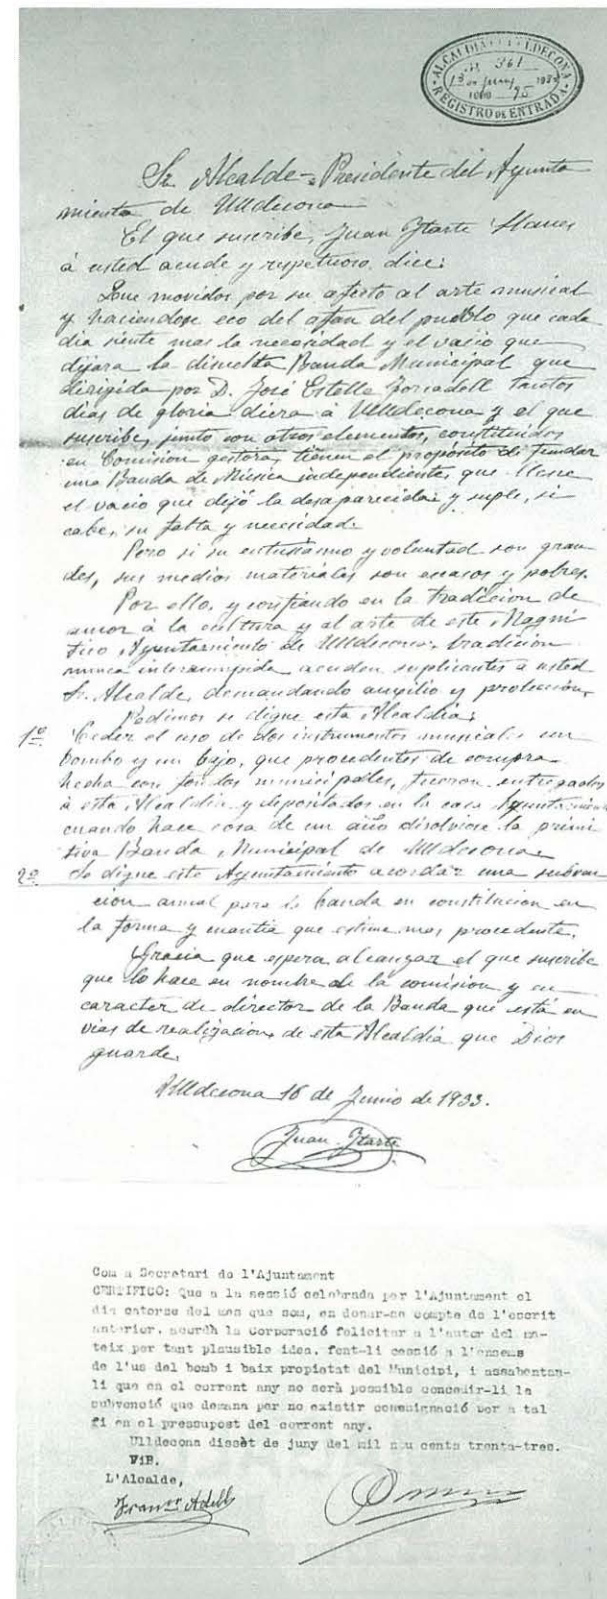 ALCALDIA ULLDECONA
Nº 361
13 de Juny 1933
REGISTRO DE ENTRADA
Sr. Alcalde-Presidente del Ayunta
miento de Ulldecona
El que suscribe, Juan Itarte
á usted acude y respetuoso, dice:
Que movidos por su afecto al arte musical
y haciendose eco del afan del pueblo que cada
dia siente mas la necesidad y el vacio que
dejara la disuelta Banda Municipal que
dirigida por D. José Estelle Forcadell tantos
dias de gloria diera á Ulldecona y el que
suscribe, junto con otros elementos, constituidos
en Comision gestora, tienen el proposito de fundar
una Banda de Música independiente, que llene
el vacio que dejó la desaparecida y suple, si
cabe, su falta y necesidad.
Pero si su entusiasmo y voluntad son gran
des, sus medios materiales son escasos y pobres.
Por ello, y confiando en la tradicion de
amor á la cultura y al arte de este Magni
fico Ayuntamiento de Ulldecona, tradicion
nunca interrumpida acuden suplicantes á usted
Sr. Alcalde, demandando auxilio y proteccion,
Pedimos se digne esta Alcaldia:
1º Ceder el uso de dos instrumentos musicales un
bombo y un bajo, que procedentes de compra
hecha con fondos municipales, fueron entregados
á esta Alcaldia y depositados en la casa Ayuntamiento
cuando hace cosa de un año disolviose la primi
tiva Banda Municipal de Ulldecona.
2º Se digne este Ayuntamiento acordar una subven
cion anual para la banda en constitucion en
la forma y cuantia que estime mas procedente.
Gracia que espera alcanzar el que suscribe
que lo hace en nombre de la comision y en
caracter de director de la Banda que está en
vias de realizacion, de esta Alcaldia que Dios
guarde.
Ulldecona 16 de Junio de 1933.
Juan Itarte
Com a Secretari de l'Ajuntament
CERTIFICO: Que a la sessió celebrada per l'Ajuntament el
dia catorse del mes que som, en donar-se compte de l'escrit
anterior, acordà la Corporació felicitar a l'autor del ma-
teix per tant plausible idea, fent-li cessió a l'ensems
de l'us del bomb i baix propietat del Municipi, i assabentan-
li que en el corrent any no serà possible concedir-li la
subvenció que demana per no existir consignació per a tal
fi en el pressupost del corrent any.
Ulldecona disset de juny del mil nou cents trenta-tres.
ViP.
L'Alcalde,
Franco Adell